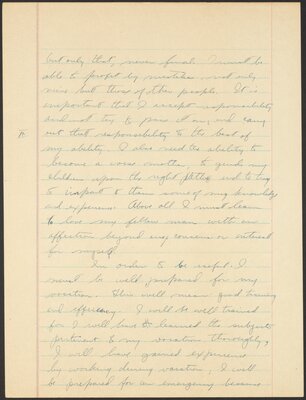 but only that, never final. I must be
able to profit by mistakes not only
mine but those of other people. It is
important that I accept responsibility
and not try to pass it on, and carry
out that responsibility to the best of
my ability. I also need the ability to
become a good mother, to guide my
children upon the right paths and to try
to impart to them some of my knowledge
and experience. Above all I must learn
to love my fellow man with an
affection beyond any concern or interest
for myself.
In order to be useful I
must be well prepared for my
vocation. This will mean good training
and efficiency. I will be well trained
for I will have learned the subjects
pertinent to my vocation thoroughly,
I will have gained experience
by working during vacation, I will
be prepared for an emergency because